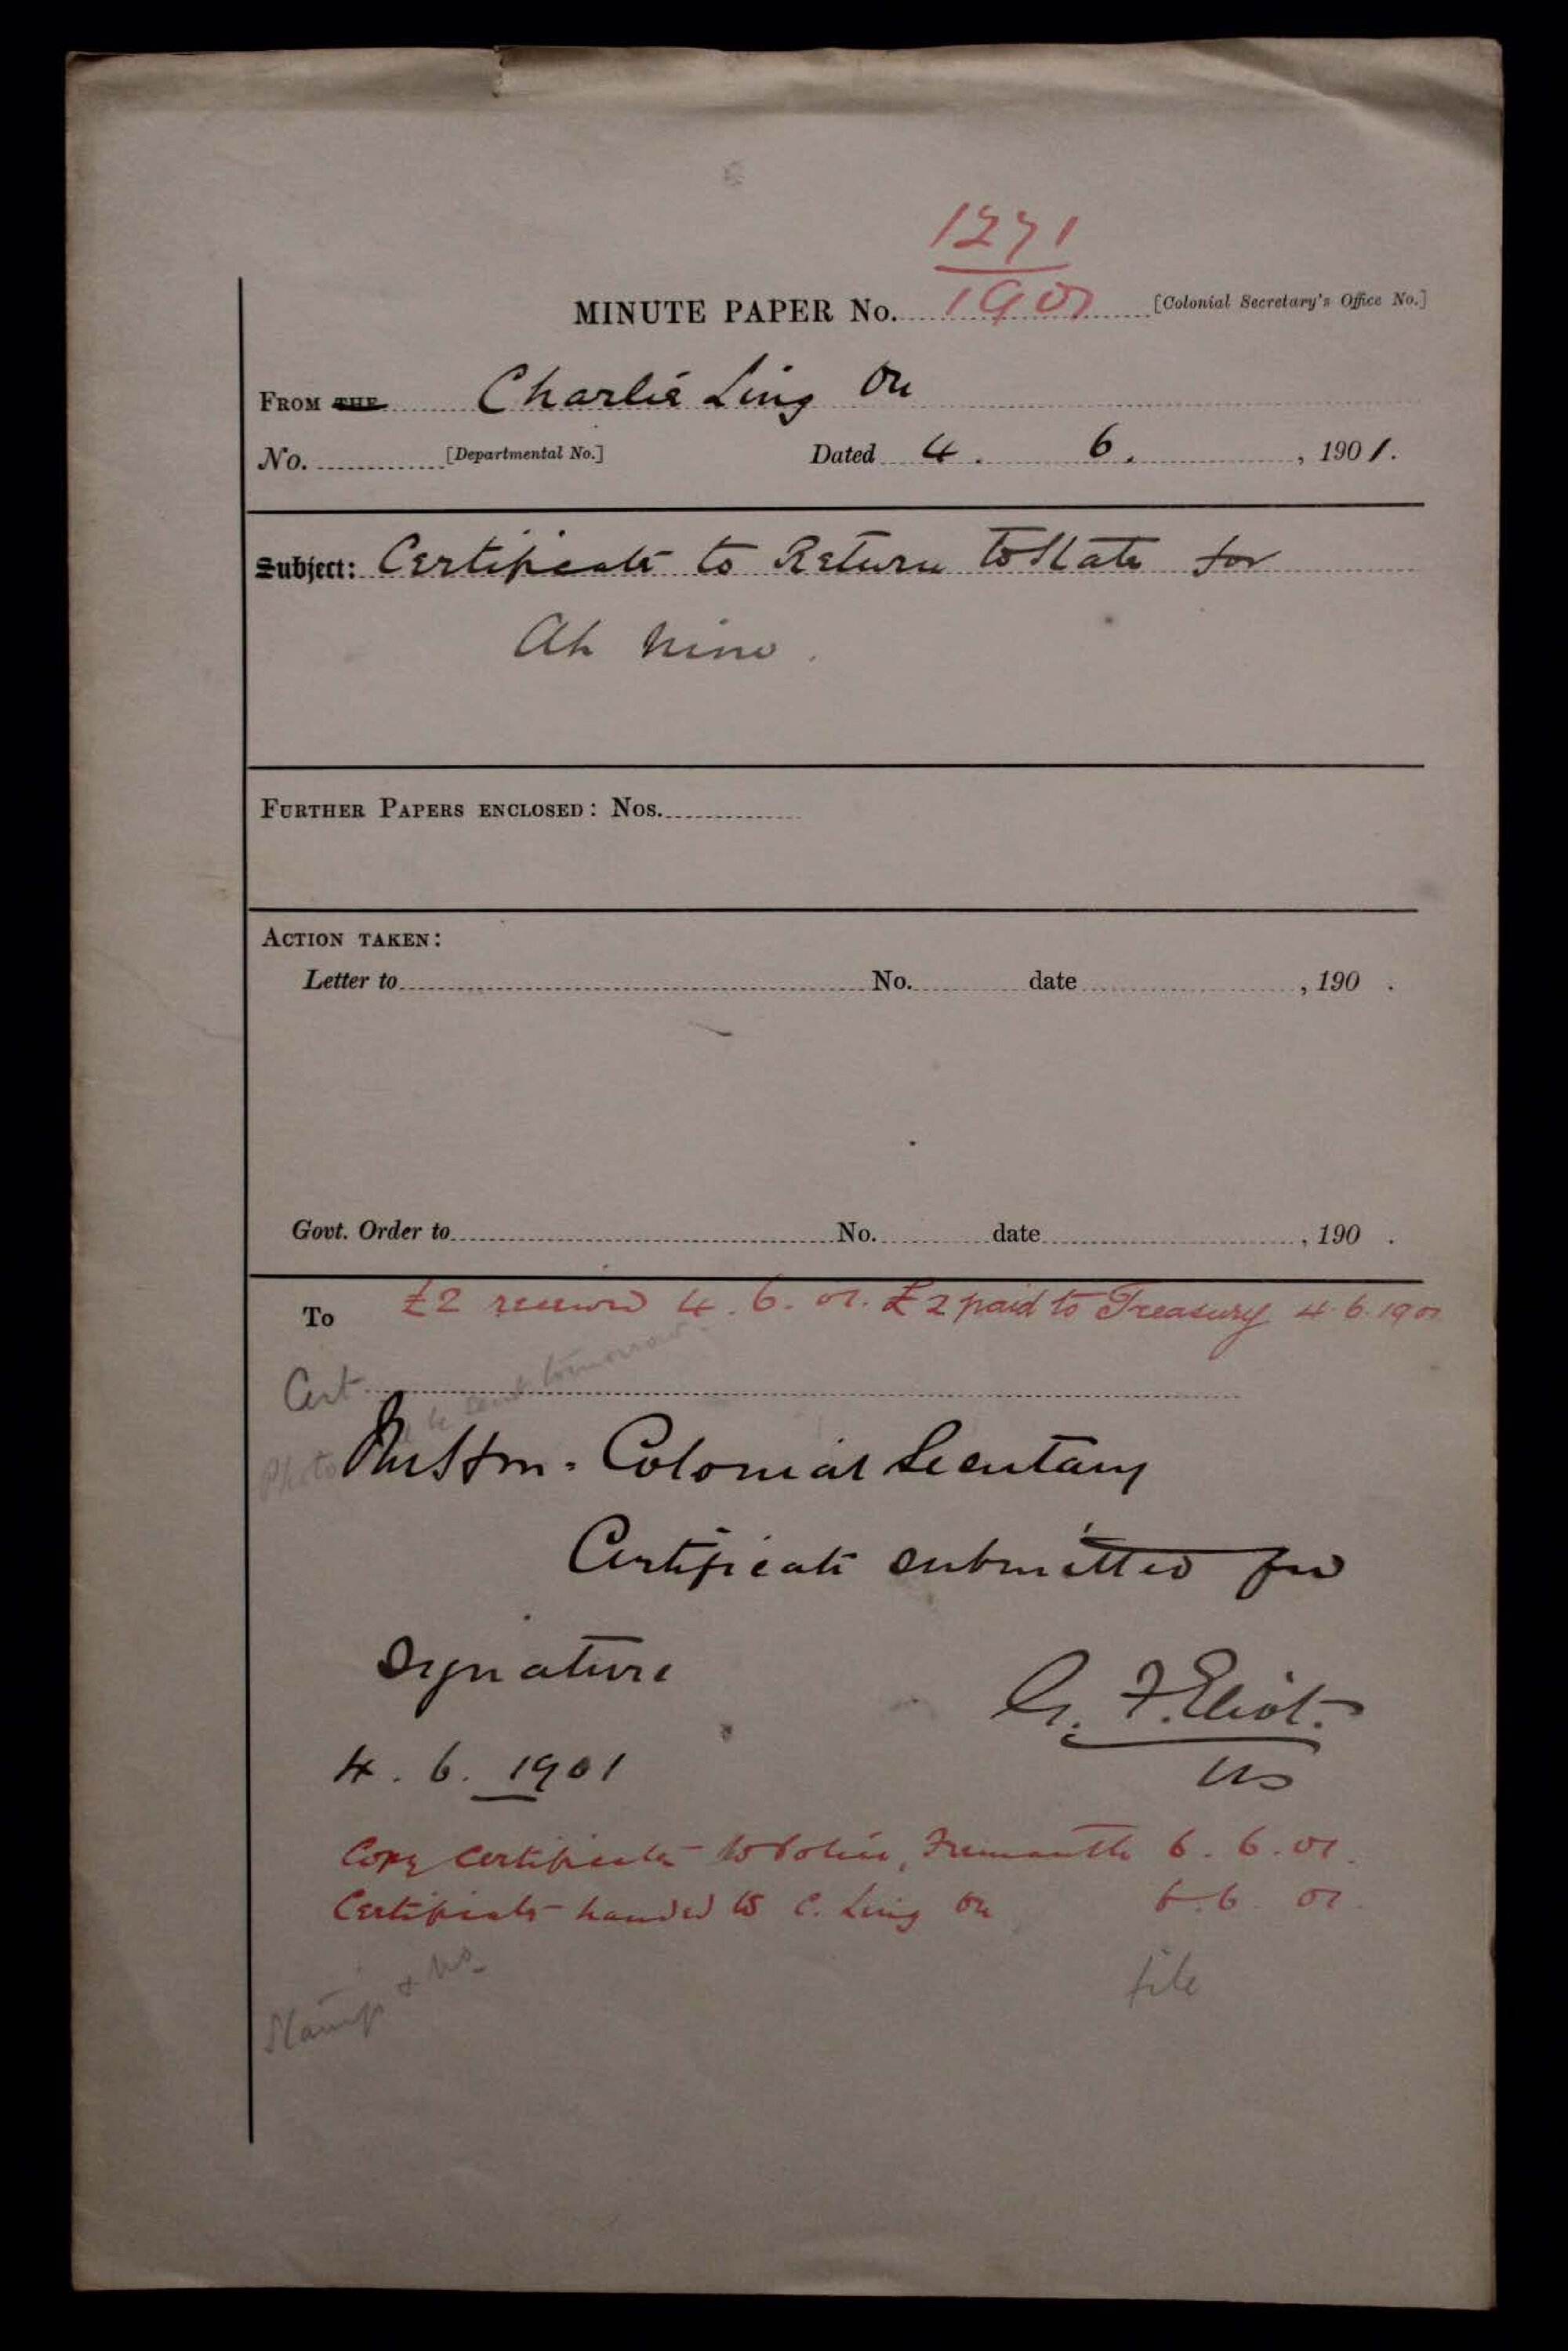 1271
1901
MINUTE PAPER No. [Colonial Secretary's Office No.]
FROM THE Charlie Ling On
No. [Departmental No.] Dated 4. 6. , 1901.
Subject: Certificate to Return to State for
Ah Nim
FURTHER PAPERS ENCLOSED: Nos.
ACTION TAKEN:
Letter to No. date , 190 .
Govt. Order to No. date , 190 .
To £2 received 4. 6. 01. £2 paid to Treasury 4. 6. 1901
Cert
Photo be sent tomorrow
The Hon. Colonial Secretary
Certificate submitted for
signature
G. F. Eliot.
4. 6. 1901 US
Copy certificate to Police, Fremantle 6. 6. 01.
Certificate handed to C. Ling On 6. 6. 01.
Stamp & No. file